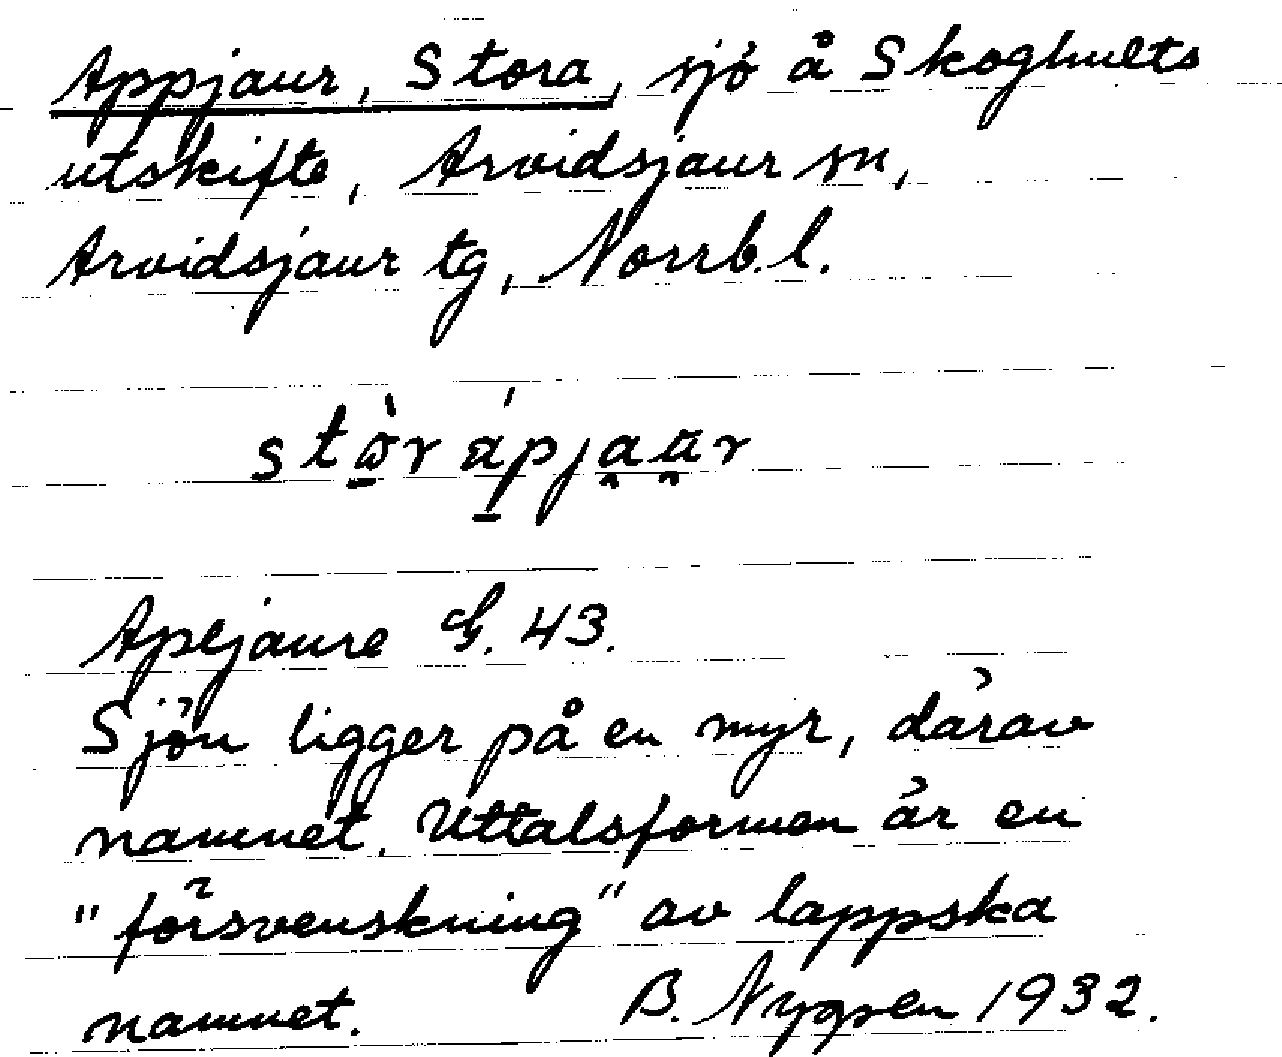 Appjaur, Stora, sjö å Skoghults
utskifte, Arvidsjaur sn,
Arvidsjaur tg, Norrb. l.
Apejaure G. 43.
Sjön ligger på en myr, därav
namnet. Uttalsformen är en
"försvenskning" av lappska
namnet. B. 1932.